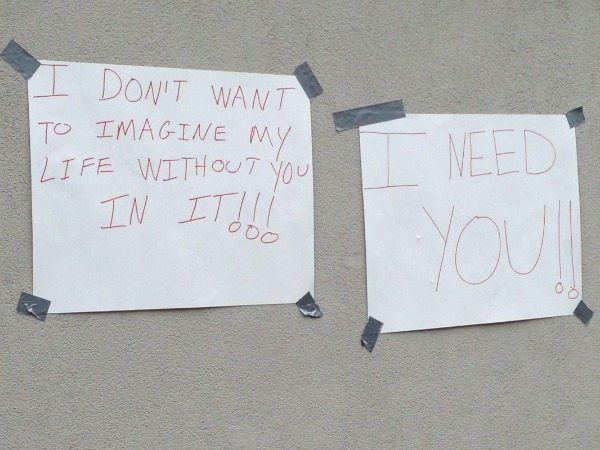 I DON'T WANT
TO IMAGINE MY
LIFE WITHOUT YOU
IN IT!!!
I NEED
YOU!!